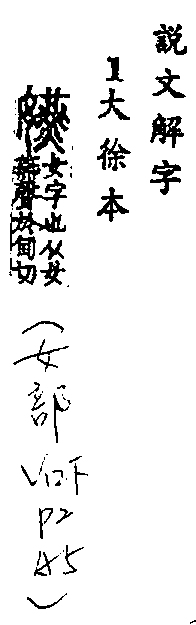 説文解字
1大徐本
嬿 女字也从女
燕聲於甸切
(女部 V12下 P2 A5)